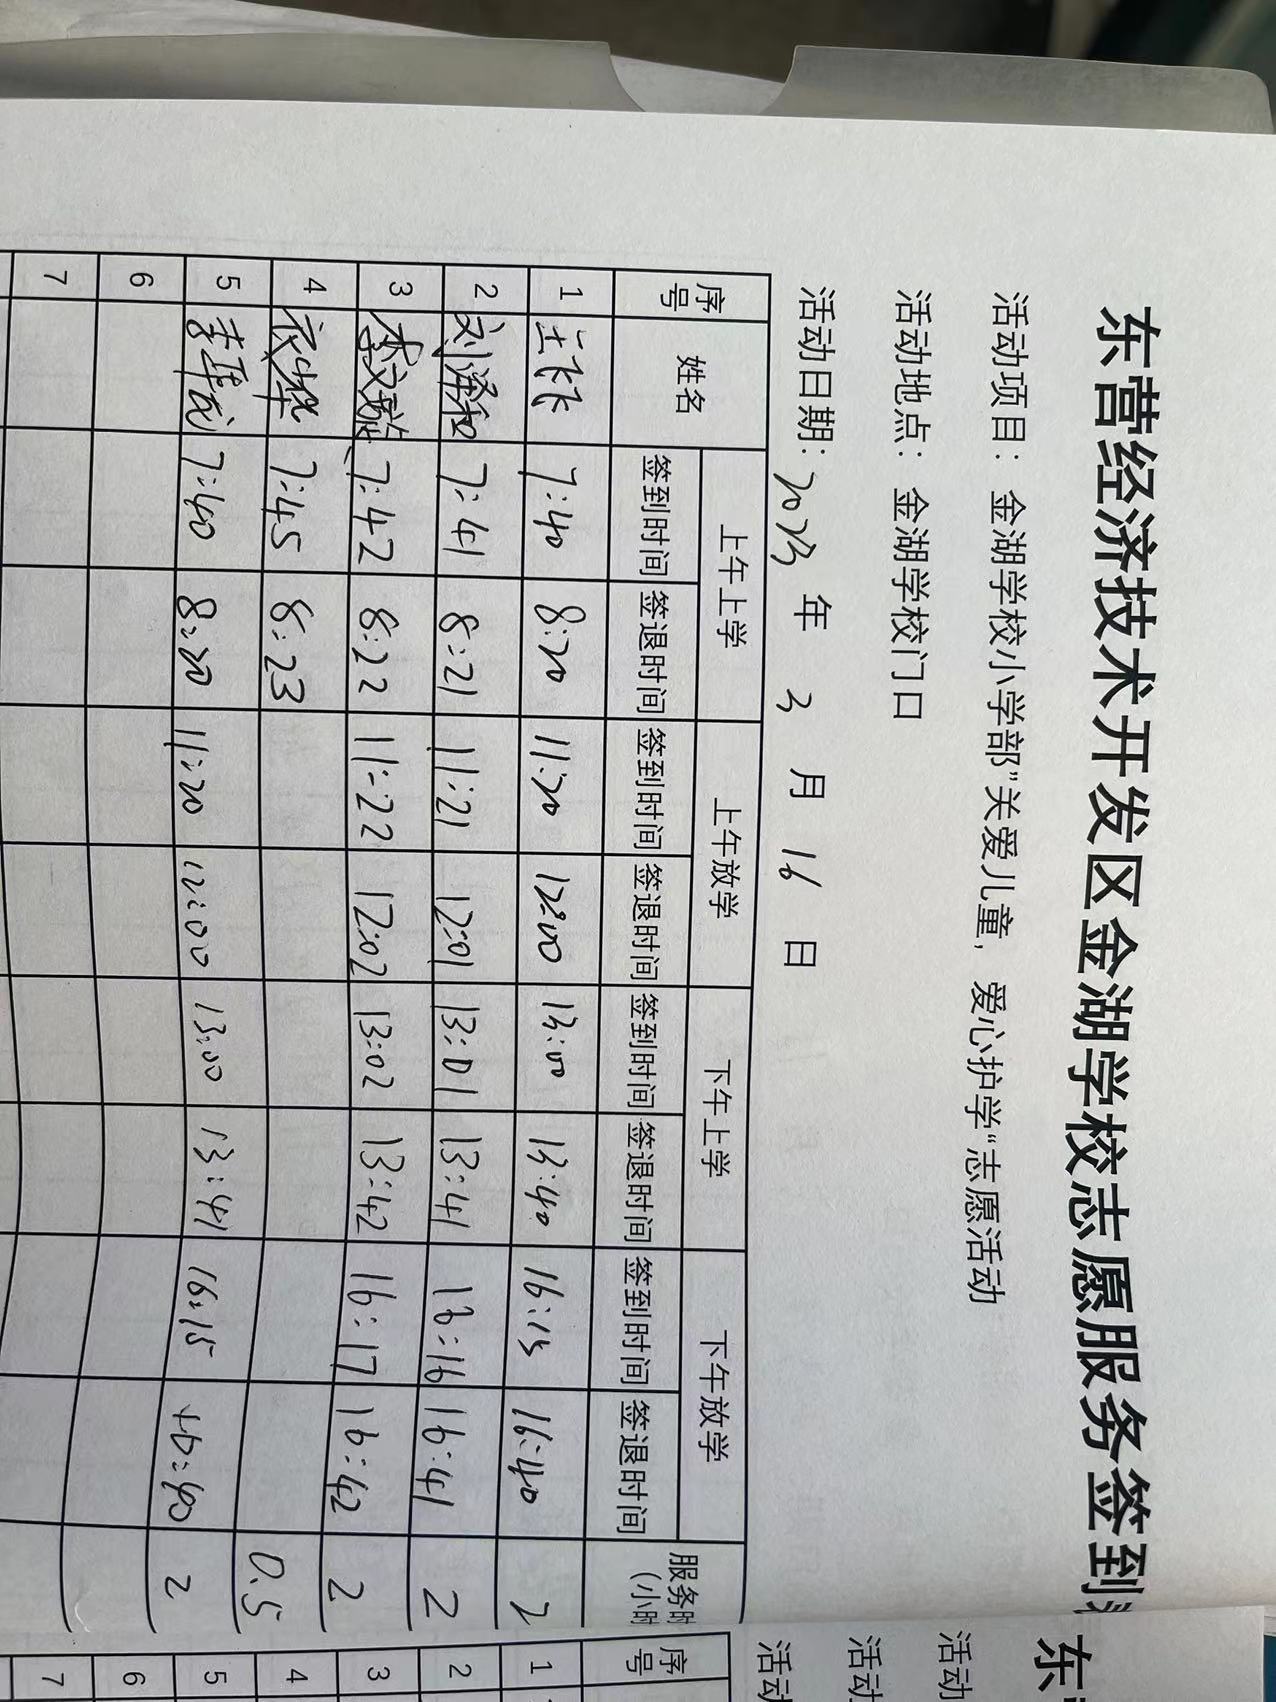 东营经济技术开发区金湖学校志愿服务签到
活动项目：金湖学校小学部"关爱儿童，爱心护学"志愿活动
活动地点：金湖学校门口
活动日期：2023年3月16日
序号 姓名 上午上学 上午放学 下午上学 下午放学 服务时
签到时间 签退时间 签到时间 签退时间 签到时间 签退时间 签到时间 签退时间 (小时
1 7:40 8:20 11:20 12:00 13:00 13:40 16:15 16:40 2
2 刘泽和 7:41 8:21 11:21 12:01 13:01 13:41 16:16 16:41 2
3 7:42 8:22 11:22 12:02 13:02 13:42 16:17 16:42 2
4 7:45 8:23 0.5
5 7:40 8:20 11:20 12:00 13:00 13:41 16:15 16:40 2
6
7
东
活动
活动
活动
序号
1
2
3
4
5
6
7